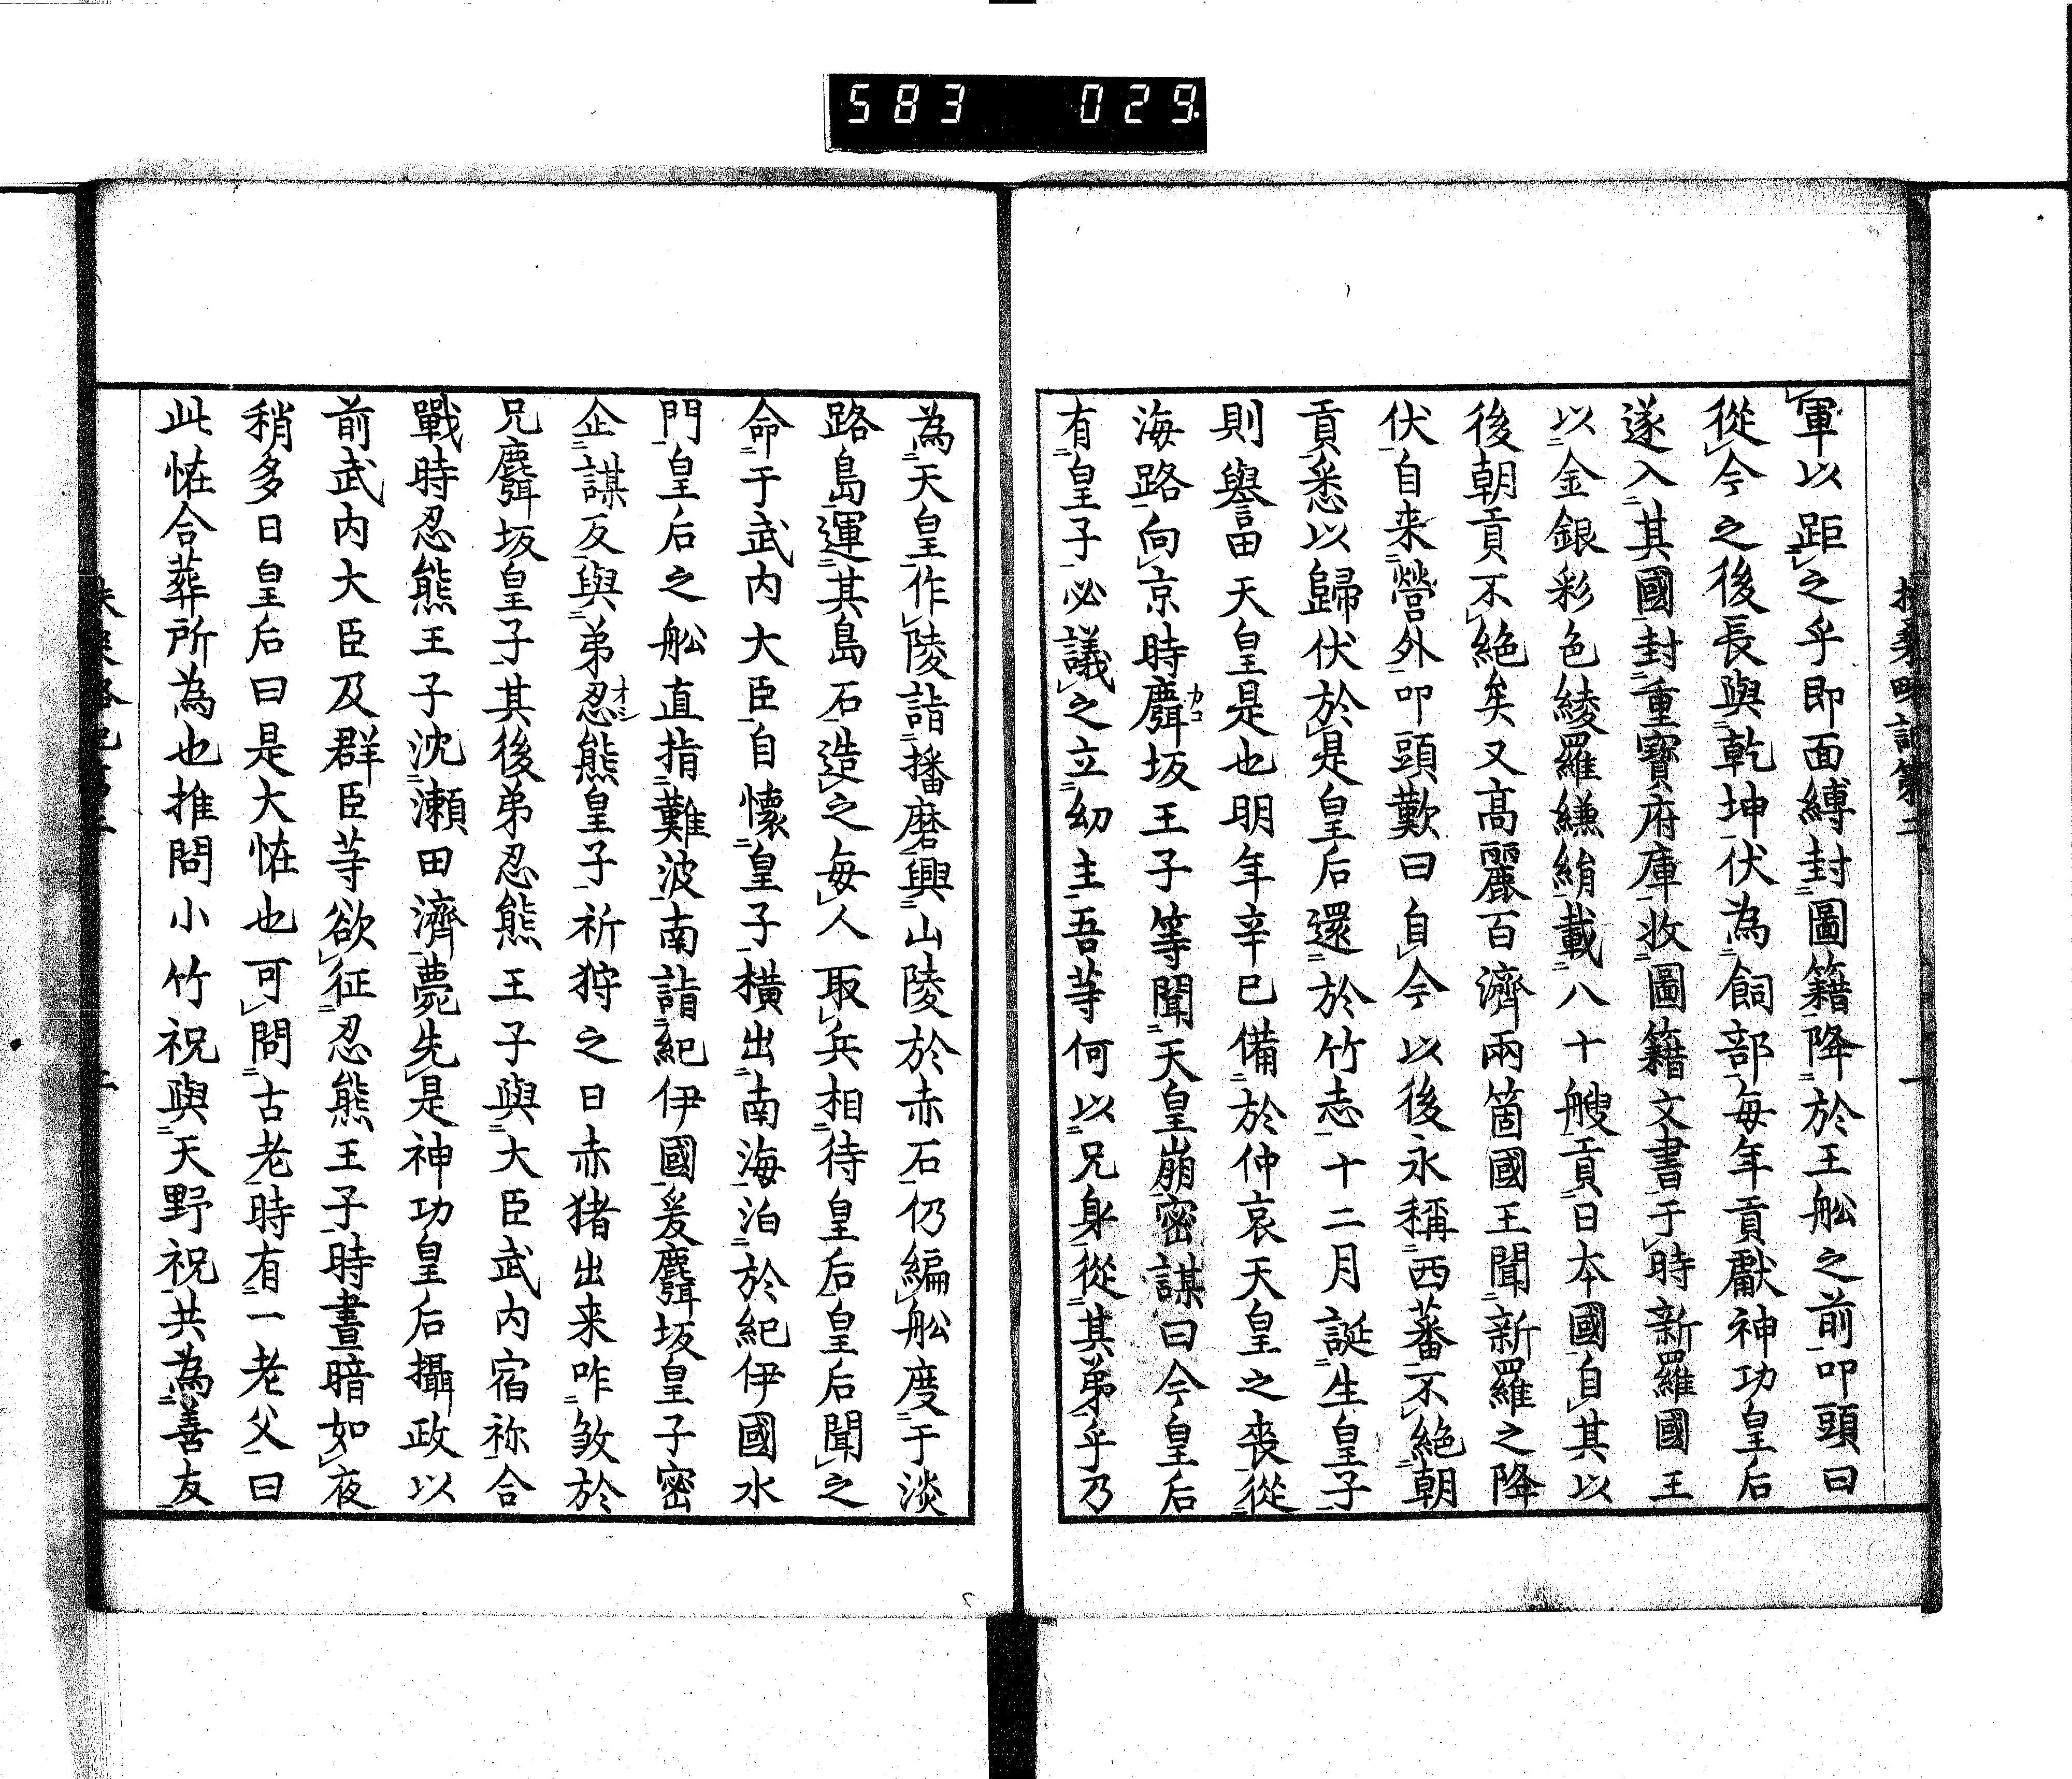 583 029
軍以距之乎即面縛封圖籍降於王舩之前叩頭曰
從今之後長與乾坤伏為飼部每年貢獻神功皇后
遂入其國封重寶府庫收圖籍文書于時新羅國王
以金銀彩色綾羅縑絹載八十艘貢日本國自其以
後朝貢不絶矣又高麗百濟兩箇國王聞新羅之降
伏自来營外叩頭歎曰自今以後永稱西蕃不絶朝
貢悉以歸伏於是皇后還於竹志十二月誕生皇子
則譽田天皇是也明年辛巳備於仲哀天皇之喪從
海路向京時麛坂王子等聞天皇崩密謀曰今皇后
カコ
有皇子必議之立幼主吾等何以兄身從其弟乎乃
為天皇作陵詣播磨興山陵於赤石仍編舩度于淡
路島運其島石造之每人取兵相待皇后皇后聞之
命于武内大臣自懷皇子橫出南海泊於紀伊國水
門皇后之舩直指難波南詣紀伊國爰麛坂皇子密
企謀反與弟忍熊皇子祈狩之日赤猪出来咋敓於
オシ
兄麛坂皇子其後弟忍熊王子與大臣武内宿祢合
戰時忍熊王子沈瀬田濟薨先是神功皇后攝政以
前武内大臣及群臣等欲征忍熊王子時晝暗如夜
稍多日皇后曰是大恠也可問古老時有一老父曰
此恠合葬所為也推問小竹祝與天野祝共為善友